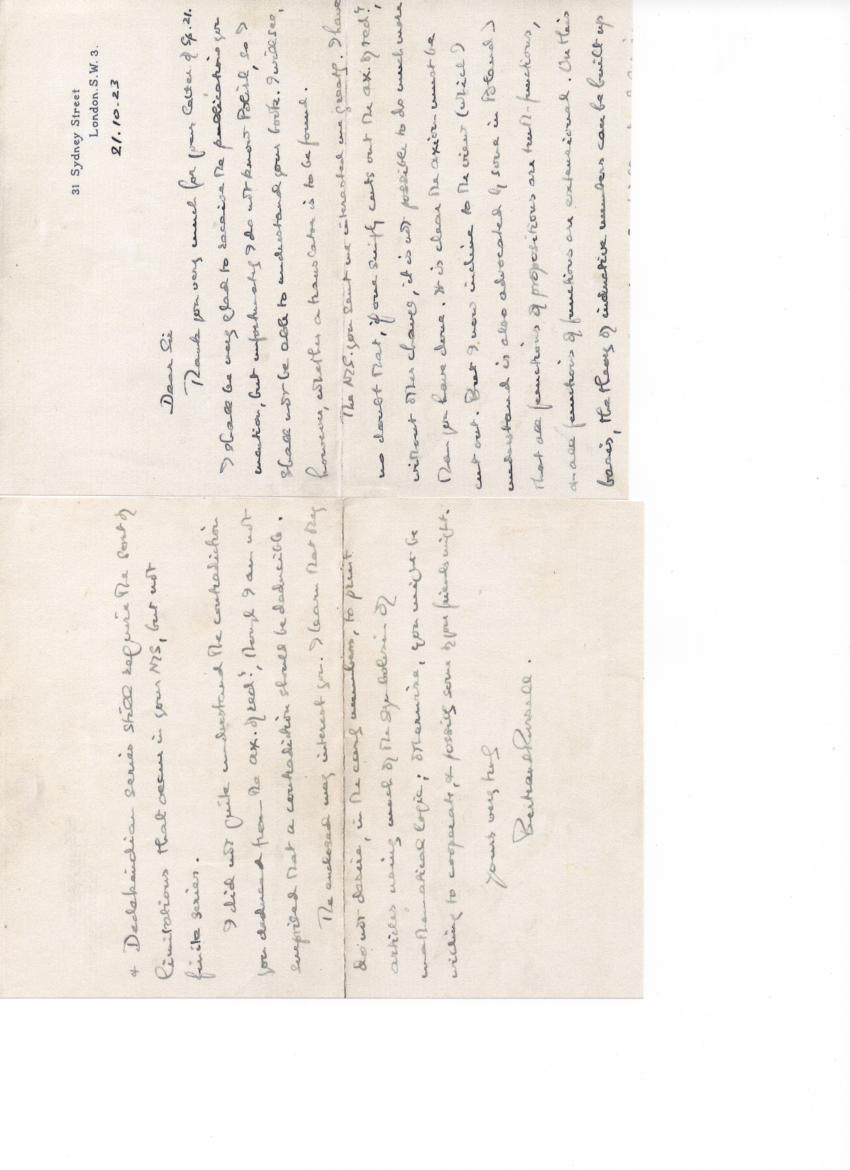 31 Sydney Street
London. S.W. 3.
21.10.23
Dear Sir
Thank you very much for your letter of Sp. 21.
I shall be very glad to receive the publications you
mention, but unfortunately I do not know Polish, so I
shall not be able to understand your book. I will see,
however, whether a translator is to be found.
The MS. you sent me interested me greatly. I have
no doubt that, if one simply cuts out the ax. of red!,
without other change, it is not possible to do much more
than you have done. It is clear the axiom must be
cut out. But I now incline to the view (which I
understand is also advocated by some in Poland)
that all functions of propositions are truth-functions,
& all functions of functions are extensional. On this
basis, the theory of inductive numbers can be built up
& Dedekindian series still require the sort of
limitations that occur in your MS, but not
finite series.
I did not quite understand the contradiction
you deduced from the ax. of red!, though I am not
surprised that a contradiction should be deducible.
The enclosed may interest you. I learn that they
do not desire, in the early numbers, to print
articles using much of the symbolism of
mathematical logic; otherwise, you might be
willing to cooperate, & possibly some of your friends might.
Yours very truly
Bertrand Russell.